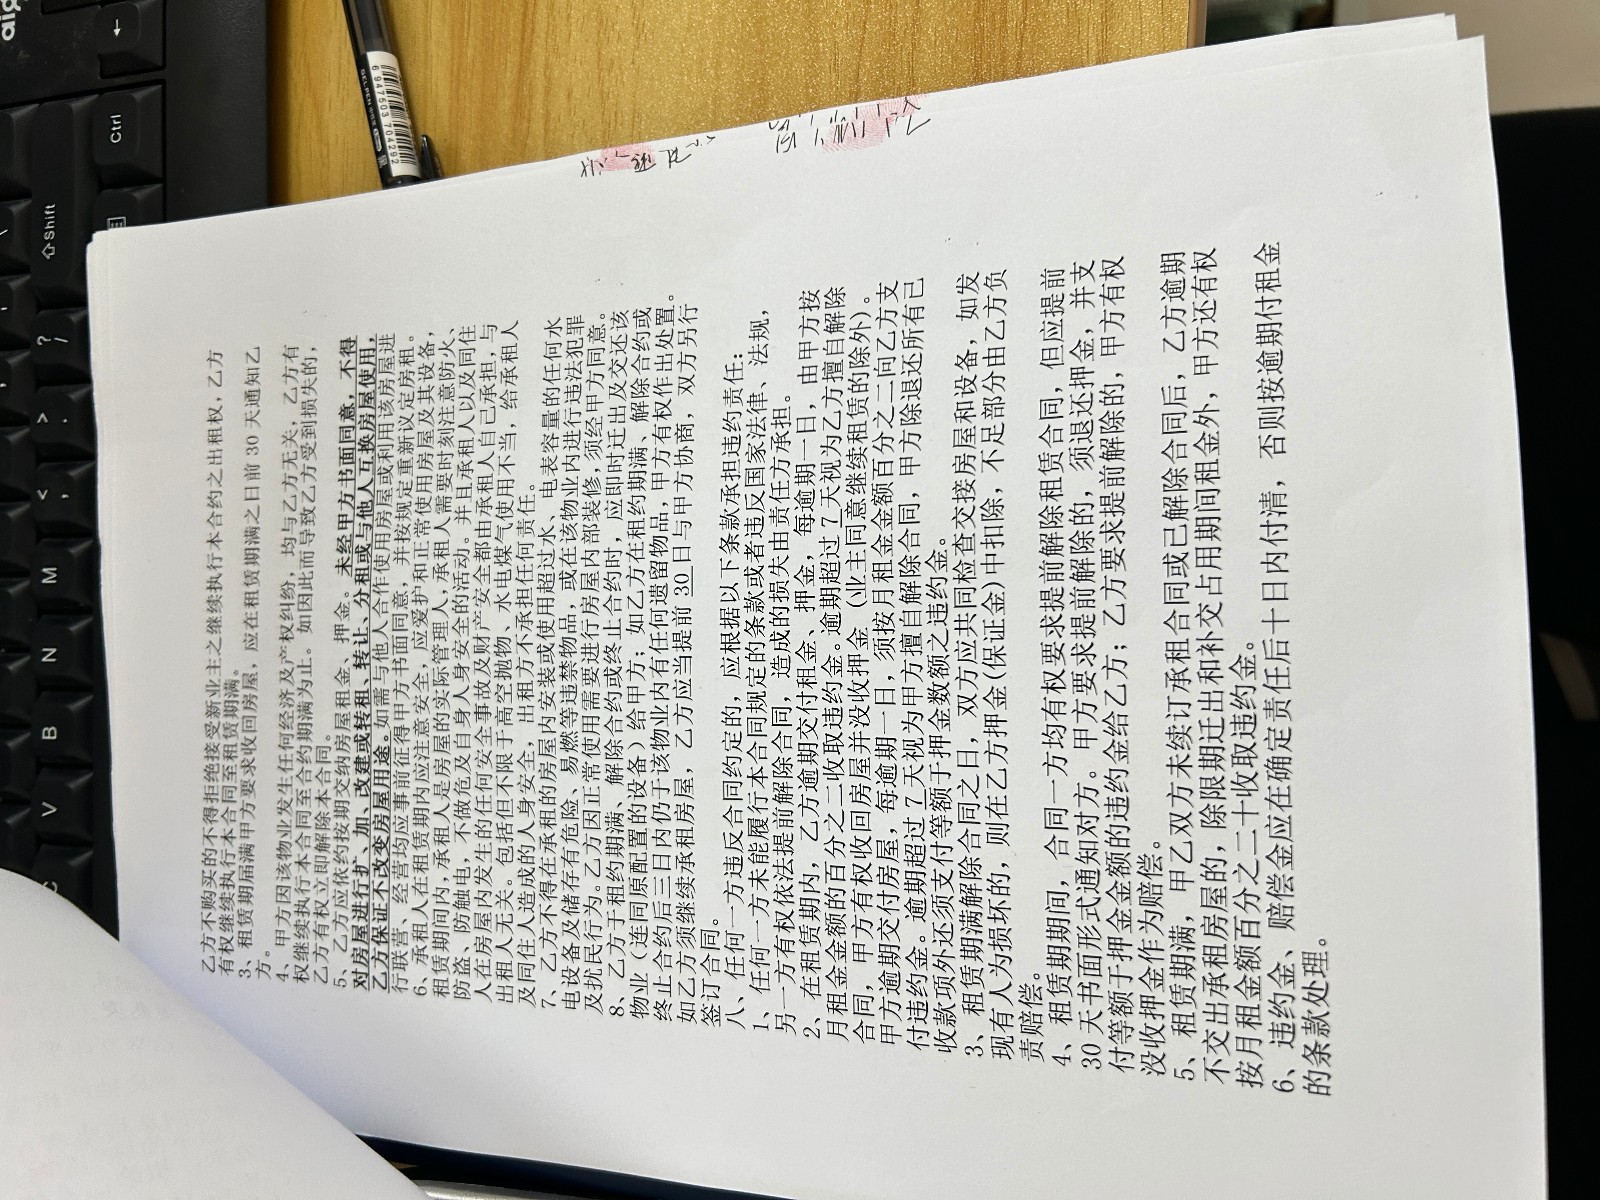 乙方不购买的不得拒绝接受新业主之继续执行本合约之出租权，乙方
有权继续执行本合同至租赁期满。
3、租赁期届满甲方要求收回房屋，应在租赁期满之日前 30 天通知乙
方。
4、甲方因该物业发生任何经济及产权纠纷，均与乙方无关，乙方有
权继续执行本合同至合约期满为止。如因此而导致乙方受到损失的，
乙方有权立即解除本合同。
5、乙方应依约按期交纳房屋租金、押金。未经甲方书面同意，不得
对房屋进行扩、加、改建或转租、转让、分租或与他人互换房屋使用，
乙方保证不改变房屋用途。如需与他人合作使用房屋或利用该房屋进
行联营、经营均应事前征得甲方书面同意，并按规定重新议定房租。
6、承租人在租赁期内应注意安全，应爱护和正常使用房屋及其设备，
租赁期间内，承租人是房屋的实际管理人，承租人需要时刻注意防火、
防盗、防触电，不做危及自身人身安全的活动。并且承租人以及同住
人在房屋内发生的任何安全事故及财产安全都由承租人自己承担，与
出租人无关。包括但不限于高空抛物、水电煤气使用不当，给承租人
及同住人造成的人身安全，出租方不承担任何责任。
7、乙方不得在承租的房屋内安装或使用超过水、电表容量的任何水
电设备及储存有危险、易燃等违禁物品，或在该物业内进行违法犯罪
及扰民行为。乙方因正常使用需要进行房屋内部装修，须经甲方同意。
8、乙方于租约期满、解除合约或终止合约时，应即时迁出及交还该
物业（连同原配置的设备）给甲方；如乙方在租约期满、解除合约或
终止合约后三日内仍于该物业内有任何遗留物品，甲方有权作出处置。
如乙方须继续承租房屋，乙方应当提前 30 日与甲方协商，双方另行
签订合同。
八、任何一方违反合同约定的，应根据以下条款承担违约责任：
1、任何一方未能履行本合同规定的条款或者违反国家法律、法规，
另一方有权依法提前解除合同，造成的损失由责任方承担。
2、在租赁期内，乙方逾期交付租金、押金，每逾期一日，由甲方按
月租金金额的百分之二收取违约金。逾期超过 7 天视为乙方擅自解除
合同，甲方有权收回房屋并没收押金（业主同意继续租赁的除外）。
甲方逾期交付房屋，每逾期一日，须按月租金金额百分之二向乙方支
付违约金。逾期超过 7 天视为甲方擅自解除合同，甲方除退还所有已
收款项外还须支付等额于押金数额之违约金。
3、租赁期满解除合同之日，双方应共同检查交接房屋和设备，如发
现有人为损坏的，则在乙方押金(保证金)中扣除，不足部分由乙方负
责赔偿。
4、租赁期期间，合同一方均有权要求提前解除租赁合同，但应提前
30 天书面形式通知对方。甲方要求提前解除的，须退还押金，并支
付等额于押金金额的违约金给乙方；乙方要求提前解除的，甲方有权
没收押金作为赔偿。
5、租赁期满，甲乙双方未续订承租合同或已解除合同后，乙方逾期
不交出承租房屋的，除限期迁出和补交占用期间租金外，甲方还有权
按月租金额百分之二十收取违约金。
6、违约金、赔偿金应在确定责任后十日内付清，否则按逾期付租金
的条款处理。
Ctrl
Shift
C
V
B
N
M
<
,
>
.
?
/
6 947503 704292